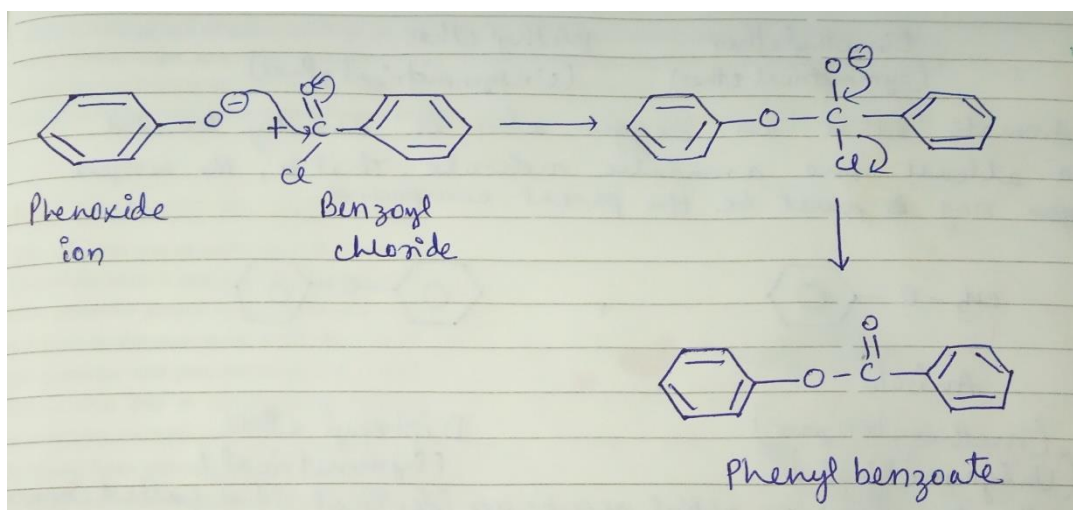 O⊖ + O || C Cl
O⊖ | O – C – | Cl
Phenoxide ion
Benzoyl chloride
O || O – C –
Phenyl benzoate